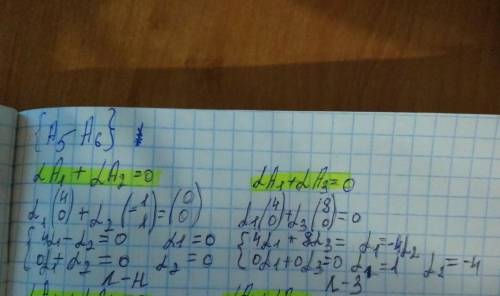 {A5 - A6}
αA1 + αA2 = 0
α1 (4 0) + α2 (-1 1) = (0 0)
{4α1 - α2 = 0 α1 = 0
{0α1 + α2 = 0 α2 = 0
Л-Н
αA1 + αA3 = 0
α1 (4 0) + α3 (8 0) = 0
{4α1 + 8α3 = α1 = -4α2
{0α1 + 0α3 = 0 α1 = 1 α2 = -4
Л-З